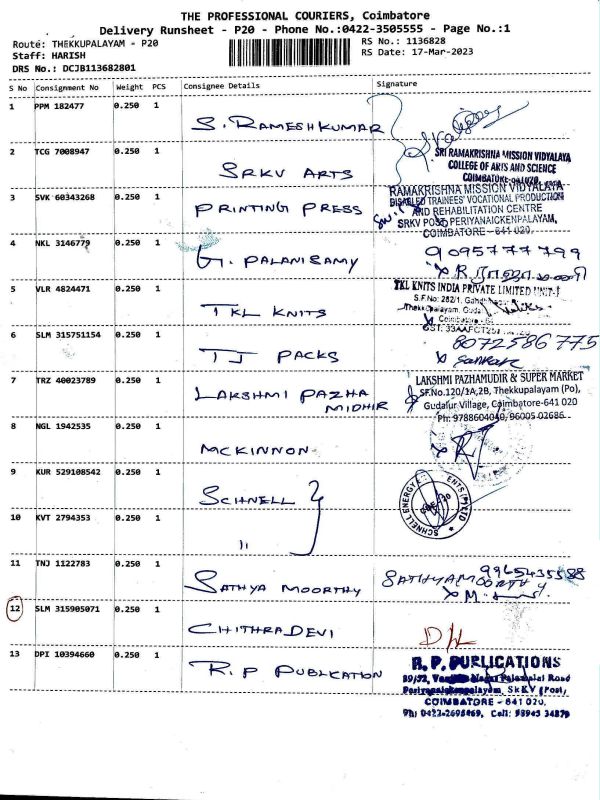 THE PROFESSIONAL COURIERS, Coimbatore
Delivery Runsheet - P20 - Phone No.:0422-3505555 - Page No.:1
Route: THEKKUPALAYAM - P20
RS No.: 1136828
Staff: HARISH
RS Date: 17-Mar-2023
DRS No.: DCJB113682801
S No Consignment No Weight PCS Consignee Details Signature
1 PPM 182477 0.250 1
S. RAMESHKUMAR
2 TCG 7008947 0.250 1
SRKV ARTS
SRI RAMAKRISHNA MISSION VIDYALAYA
COLLEGE OF ARTS AND SCIENCE
COIMBATORE-641020.
3 SVK 60343268 0.250 1
PRINTING PRESS
RAMAKRISHNA MISSION VIDYALAYA
DISABLED TRAINEES' VOCATIONAL PRODUCTION
AND REHABILITATION CENTRE
SRKV POST PERIYANAICKENPALAYAM,
COIMBATORE - 641 020.
4 NKL 3146779 0.250 1
G. PALANISAMY
9095777799
5 VLR 4824471 0.250 1
TKL KNITS
TKL KNITS INDIA PRIVATE LIMITED UNIT-I
S.F.No: 282/1,
Thekkupalayam,
Coimbatore
GST: 33AAFCT25
6 SLM 315751154 0.250 1
TJ PACKS
8072586775
Sankar
7 TRZ 40023789 0.250 1
LAKSHMI PAZHA
MIDHIR
LAKSHMI PAZHAMUDIR & SUPER MARKET
SF.No.120/1A,2B, Thekkupalayam (Po),
Gudalur Village, Coimbatore-641 020
Ph: 9788604040, 96005 02686
8 NGL 1942535 0.250 1
MCKINNON
9 KUR 529108542 0.250 1
SCHNELL
SCHNELL ENERGY
ENTS (P) LTD
10 KVT 2794353 0.250 1
"
11 TNJ 1122783 0.250 1
SATHYA MOORTHY
SATHYAMOORTHY
9965435588
12 SLM 315905071 0.250 1
CHITHRADEVI
D/L
13 DPI 10394660 0.250 1
R.P PUBLICATION
R.P. PUBLICATIONS
89/52, Nagar Palamalai Road
Periyanaickenpalayam, SRKV (Post),
COIMBATORE - 641 020.
Ph: 0422-2695869, Cell: 98945 34879